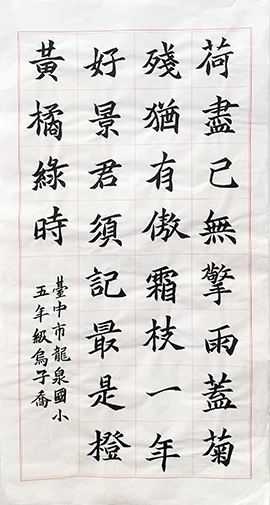 荷盡已無擎雨蓋菊
殘猶有傲霜枝一年
好景君須記最是橙
黃橘綠時
臺中市龍泉國小
五年級烏子喬